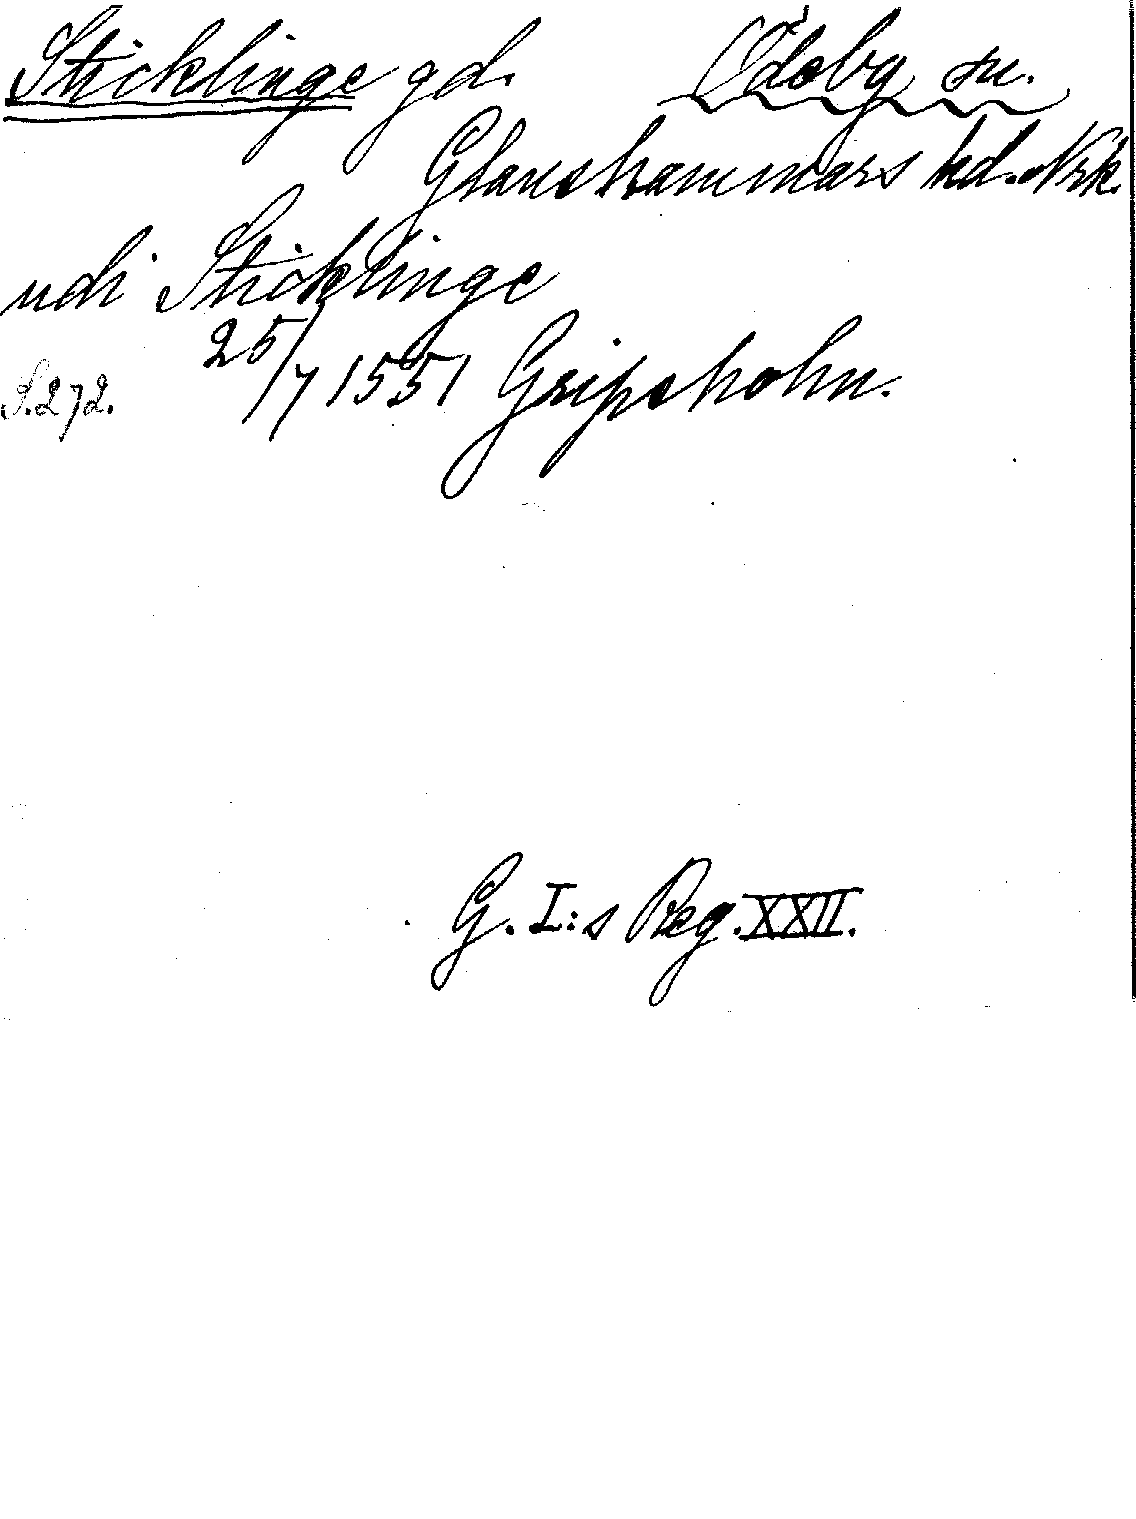 Sticklinge gd. Ödeby sn.
Glanshammars hd. Nrk.
udi Sticklinge
25/7 1551 Gripsholm.
S. 272.
G. I:s Reg. XXII.